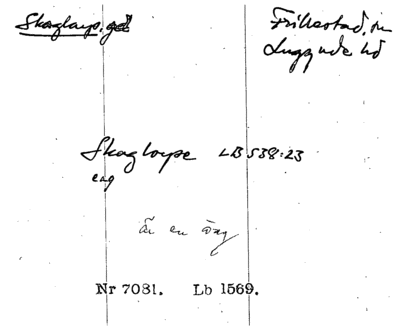 Skaglarp, gd Frillestad, sn
Luggude hd
Skagloype LB 538:23
eng
är en äng
Nr 7081. Lb 1569.